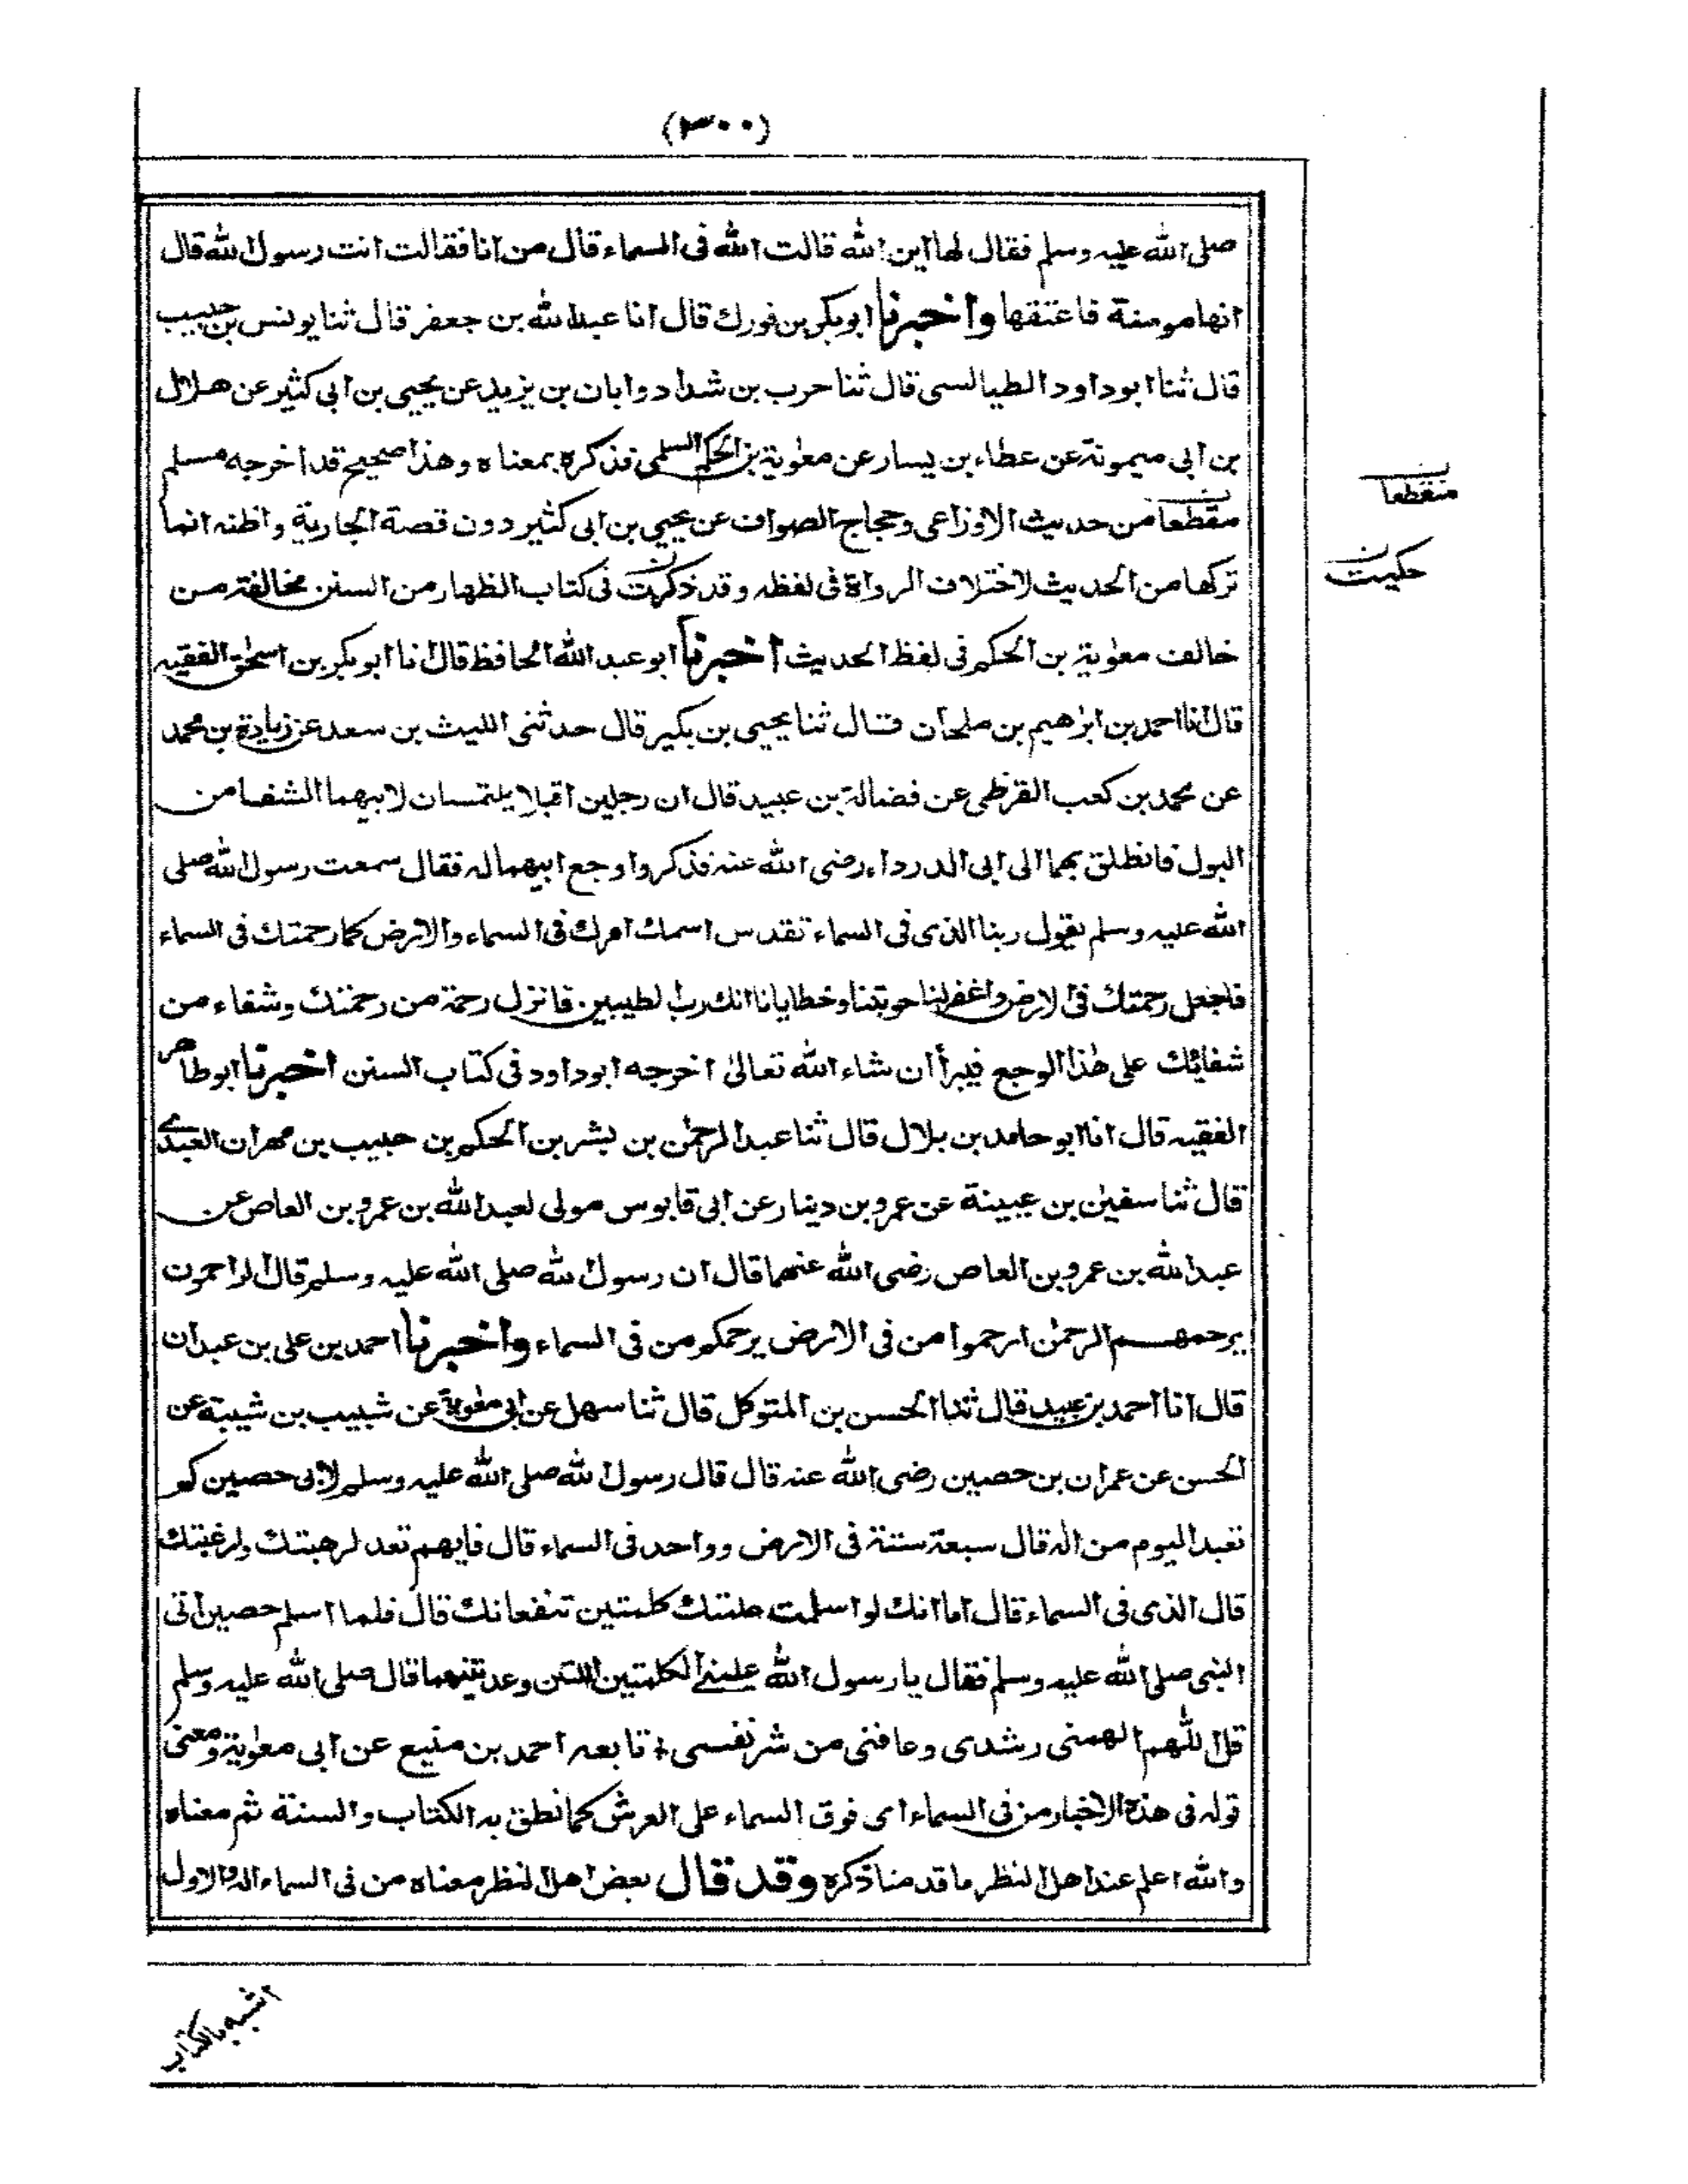 (٣٠٠)
صلى الله عليه وسلم فقال لها اين الله قالت الله فى السماء قال من انا فقالت انت رسول الله قال
انها مومنة فاعتقها واخبرنا ابو بكر بن فورك قال انا عبد الله بن جعفر قال ثنا يونس بن حبيب
قال ثنا ابو داود الطيالسى قال ثنا حرب بن شداد وابان بن يزيد عن يحيى بن ابى كثير عن هلال
بن ابى ميمونة عن عطاء بن يسار عن معٰوية بن الحكم السلمى فذكره بمعناه وهذا صحيح قد اخرجه مسلم
مقطعا من حديث الاوزاعى وحجاج الصواف عن يحيى بن ابى كثير دون قصة الجارية واظنه انما
تركها من الحديث لاختلاف الرواة فى لفظه وقد ذكرت فى كتاب الظهار من السنن مخالفة من
خالف معٰوية بن الحكم فى لفظ الحديث اخبرنا ابو عبد الله الحافظ قال انا ابو بكر بن اسحٰق الفقيه
قال انا احمد بن ابرٰهيم بن ملحان قال ثنا يحيى بن بكير قال حدثنى الليث بن سعد عن زيادة بن محمد
عن محمد بن كعب القرظى عن فضالة بن عبيد قال ان رجلين اقبلا يلتمسان لابيهما الشفا من
البول فانطلق بهما الى ابى الدرداء رضى الله عنه فذكروا وجع ابيهما له فقال سمعت رسول الله صلى
الله عليه وسلم يقول ربنا الذى فى السماء تقدس اسمك امرك فى السماء والارض كما رحمتك فى السماء
فاجعل رحمتك فى الارض واغفر لنا حوبتنا وخطايانا انك رب الطيبين فانزل رحمة من رحمتك وشفاء من
شفائك على هٰذا الوجع فيبرأ ان شاء الله تعالىٰ اخرجه ابو داود فى كتاب السنن اخبرنا ابو طاهر
الفقيه قال انا ابو حامد بن بلال قال ثنا عبد الرحمٰن بن بشر بن الحكم بن حبيب بن مهران العبدى
قال ثنا سفيٰن بن عيينة عن عمرو بن دينار عن ابى قابوس مولى لعبد الله بن عمرو بن العاص عن
عبد الله بن عمرو بن العاص رضى الله عنهما قال ان رسول الله صلى الله عليه وسلم قال الراحمون
يرحمهم الرحمٰن ارحموا من فى الارض يرحمكم من فى السماء واخبرنا احمد بن على بن عبدان
قال انا احمد بن عبيد قال ثنا الحسن بن المتوكل قال ثنا سهل عن ابى معٰوية عن شبيب بن شيبة عن
الحسن عن عمران بن حصين رضى الله عنه قال قال رسول الله صلى الله عليه وسلم لابى حصين كم
تعبد اليوم من اله قال سبعة ستة فى الارض وواحد فى السماء قال فايهم تعد لرهبتك ولرغبتك
قال الذى فى السماء قال اما انك لو اسلمت علمتك كلمتين تنفعانك قال فلما اسلم حصين اتى
النبى صلى الله عليه وسلم فقال يا رسول الله علمنى الكلمتين اللتين وعدتنيهما قال صلى الله عليه وسلم
قل اللهم الهمنى رشدى وعافنى من شر نفسى تابعه احمد بن منيع عن ابى معٰوية ومعنى
قوله فى هذه الاخبار من فى السماء اى فوق السماء على العرش كما نطق به الكتاب والسنة ثم معناه
والله اعلم عند اهل النظر ما قدمنا ذكره وقد قال بعض اهل النظر معناه من فى السماء اله والاول
منقطعا
حكيت
اشبه بالكتاب